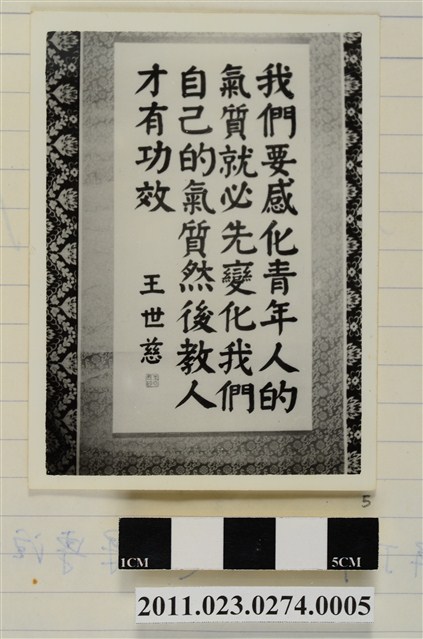 我們要感化青年人的
氣質就必先變化我們
自己的氣質然後教人
才有功效
王世慈
5
1CM
5CM
2011.023.0274.0005